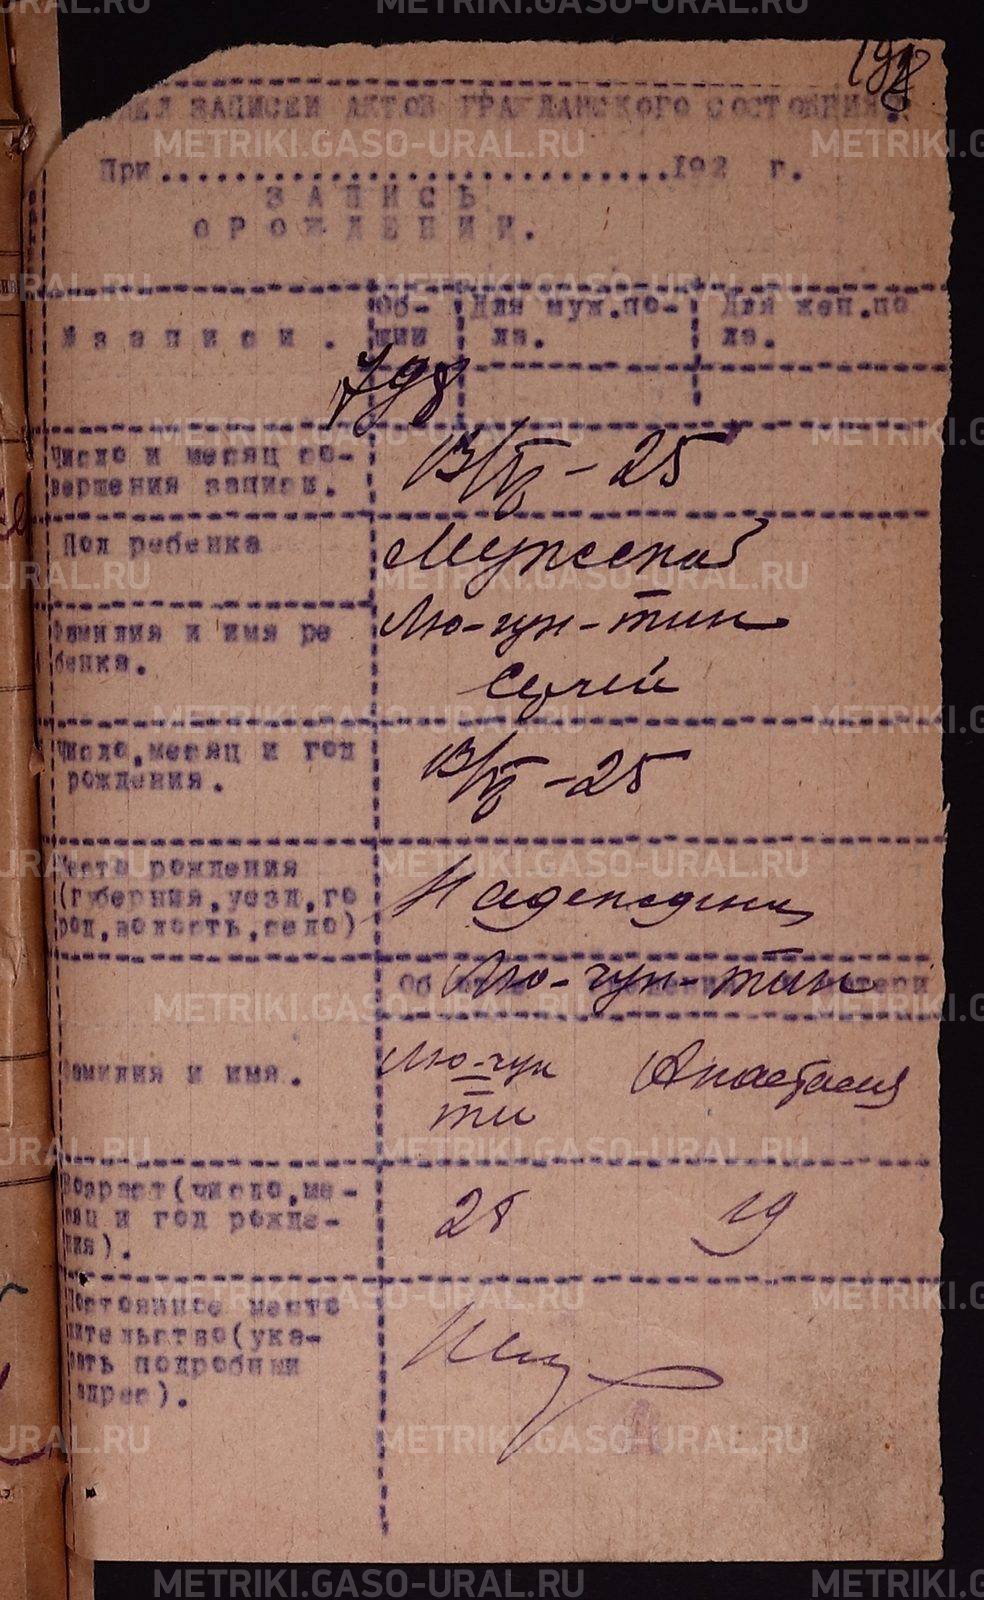 ОТДЕЛ ЗАПИСЕЙ АКТОВ ГРАЖДАНСКОГО СОСТОЯНИЯ.
При..............................192 г.
ЗАПИСЬ
О РОЖДЕНИИ.
№ записи.
Об-
щий
Для муж.по-
ла.
Для жен.по
ла.
798
Число и месяц со-
вершения записи.
Пол ребенка
Мужской
Фамилия и имя ре
бенка.
Лю-чун-тин
Сергей
Число,месяц и год
рождения.
Место рождения
(губерния,уезд,го
род,волость,село)
Надеждинск
Лю-чун-тин
Фамилия и имя.
Лю-чун
тин
Анастасия
Возраст(число,ме-
сяц и год рожде-
ния).
28
19
Постоянное место
жительство(ука-
зать подробный
адрес).
METRIKI.GASO-URAL.RU